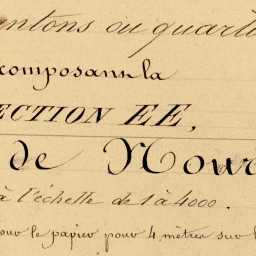 antons ou quarti
composant la
ECTION EE,
de Nour
à l'échelle de 1 à 4000.
sur le papier pour 4 mètres sur l